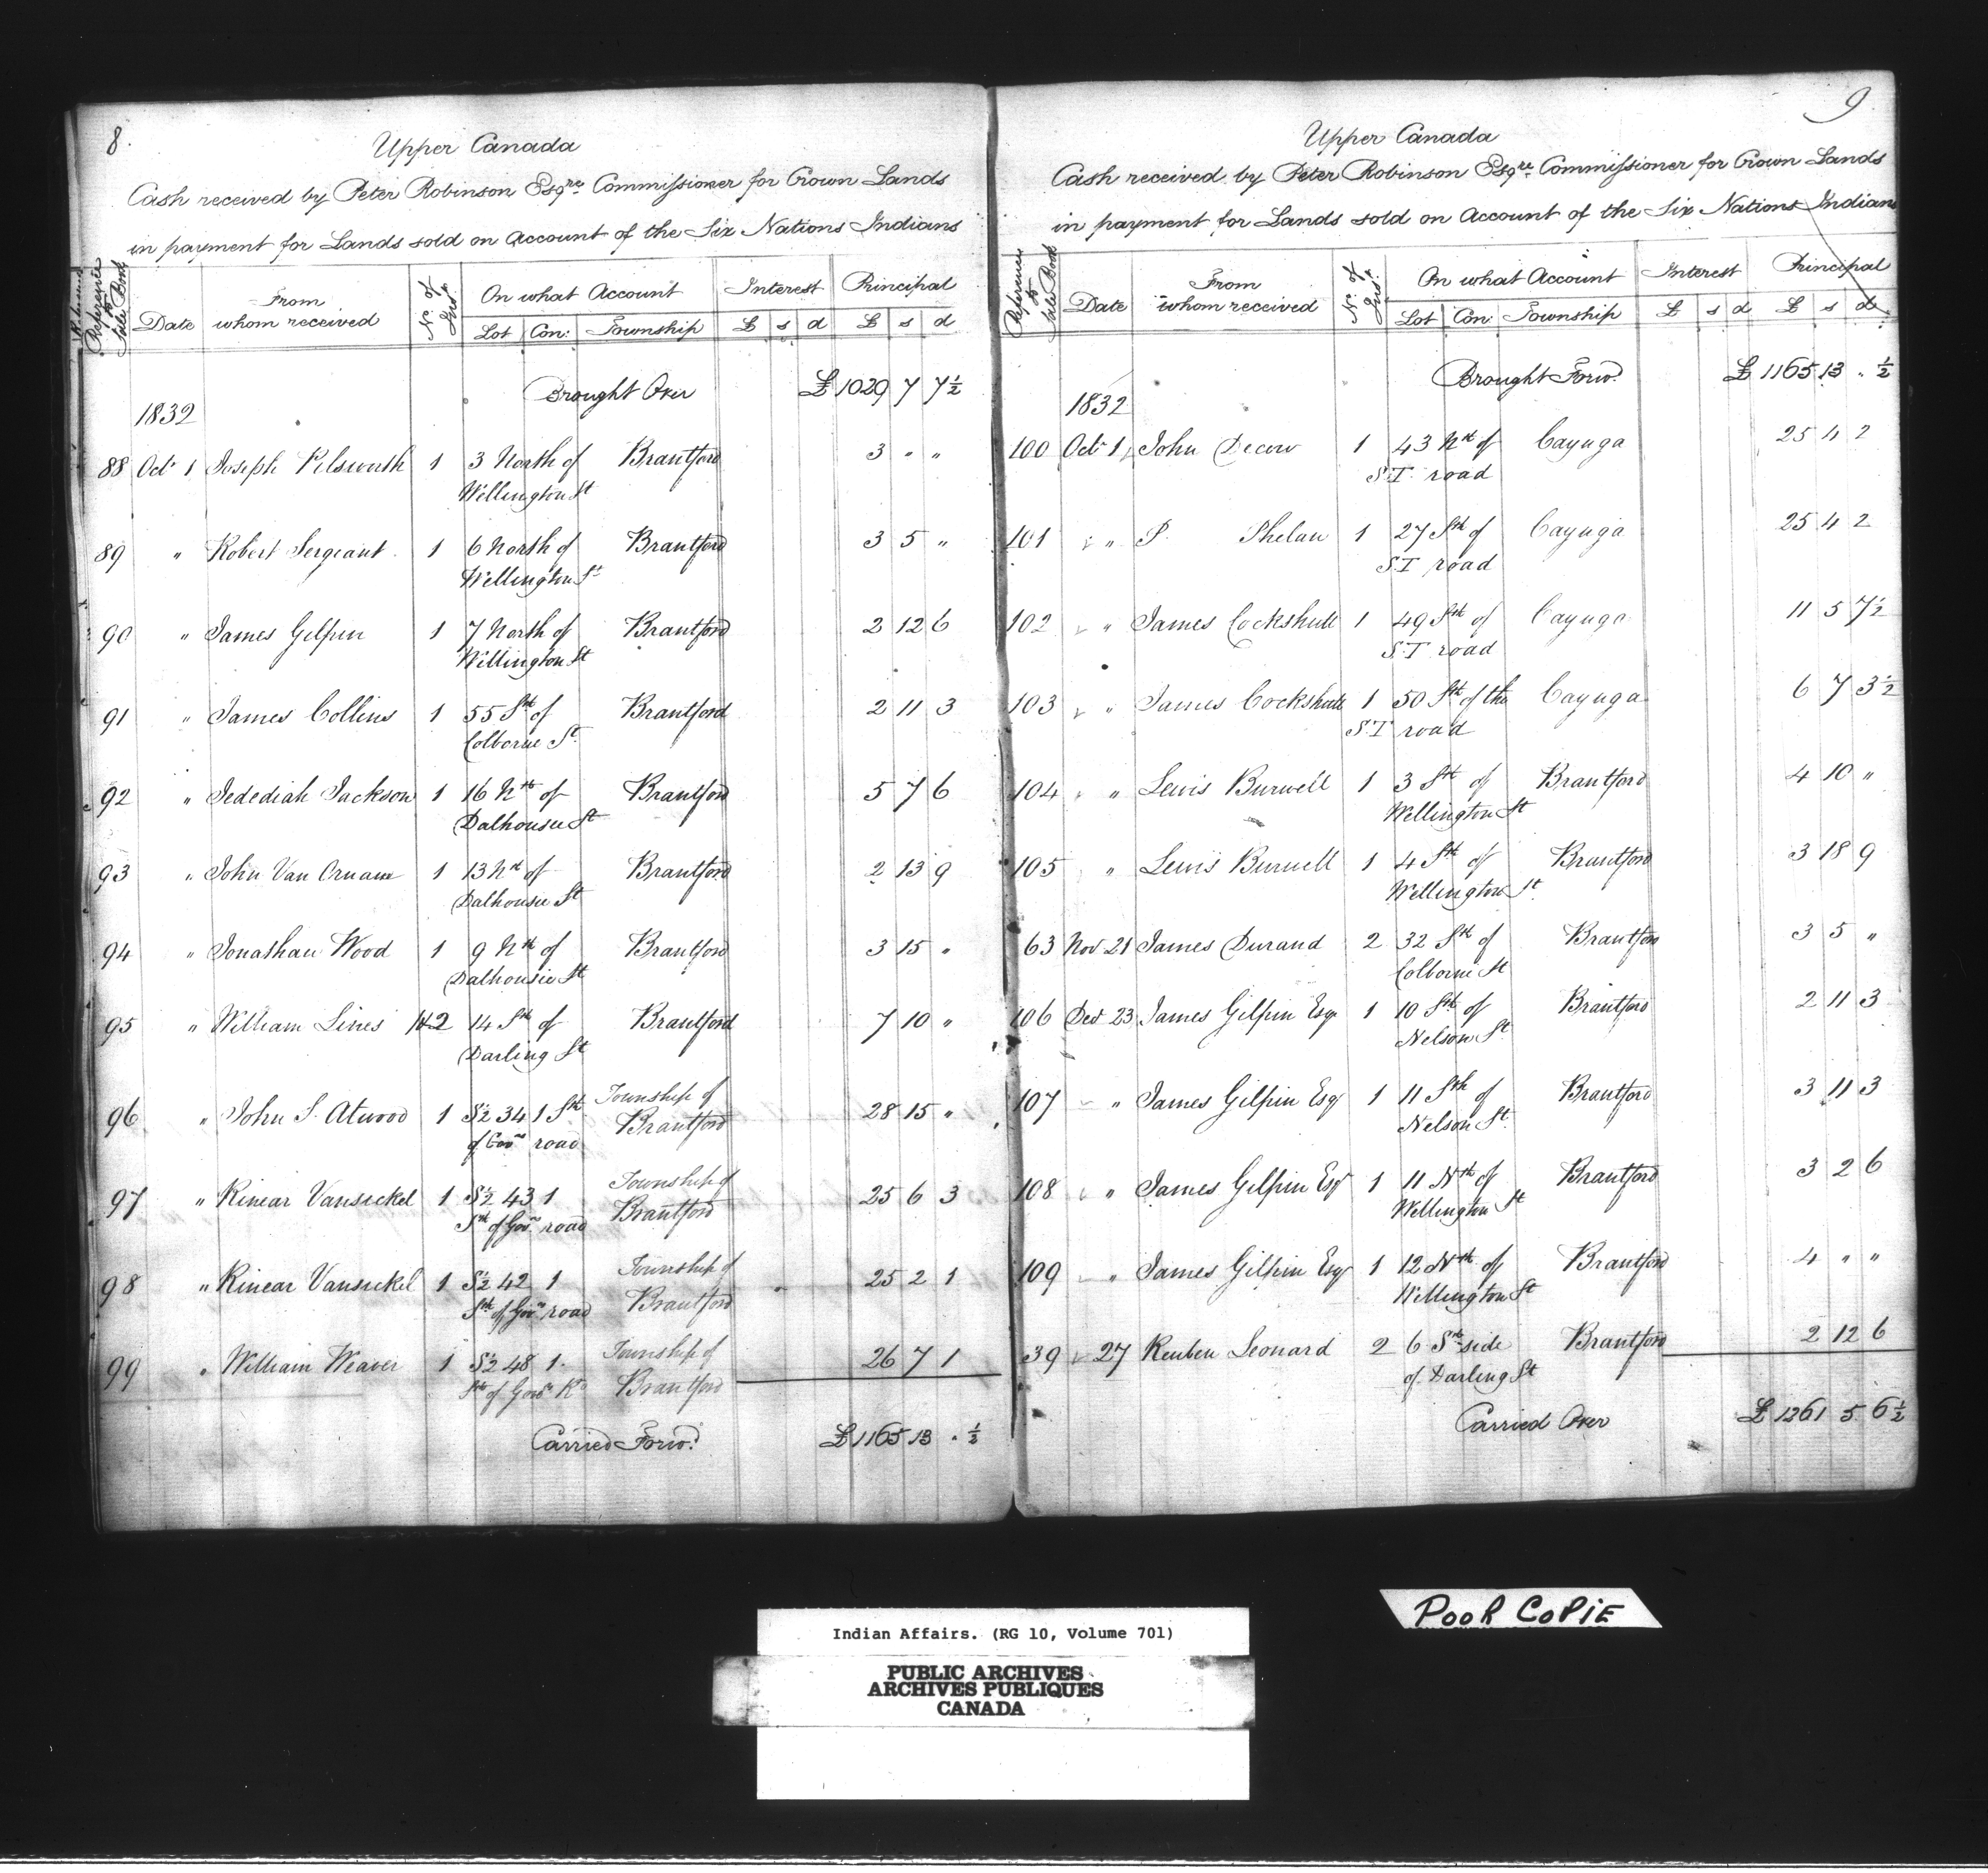 8.
Upper Canada
Cash received by Peter Robinson Esqre Commissioner for Crown Lands
in payment for Lands sold on Account of the Six Nations Indians
Reference to Sale Book | Date | From whom received | No. of Inst. | On what Account | Interest | Principal
Lot | Con: | Township | £ | s | d | £ | s | d
Brought Over £ 1029 7 7½
1832
88 Oct 1 Joseph Pilsworth 1 3 North of Brantford 3 " "
Wellington St
89 " Robert Sergeant 1 6 North of Brantford 3 5 "
Wellington St
90 " James Gilpin 1 7 North of Brantford 2 12 6
Wellington St
91 " James Collins 1 55 Sth of Brantford 2 11 3
Colborne St
92 " Jedediah Jackson 1 16 Nth of Brantford 5 7 6
Dalhousie St
93 " John Van Ornam 1 13 Nth of Brantford 2 13 9
Dalhousie St
94 " Jonathan Wood 1 9 Nth of Brantford 3 15 "
Dalhousie St
95 " William Lines 1&2 14 Sth of Brantford 7 10 "
Darling St
96 " John S. Atwood 1 S½ 34 1 Sth Township of 28 15 "
of Govr road Brantford
97 " Rinear Vansickel 1 S½ 43 1 Township of 25 6 3
Sth of Govr road Brantford
98 " Rinear Vansickel 1 S½ 42 1 Township of 25 2 1
Sth of Govr road Brantford
99 " William Weaver 1 S½ 48 1 Township of 26 7 1
Sth of Govr Rd Brantford
Carried Forwd £ 1165 13 " ½
9
Upper Canada
Cash received by Peter Robinson Esqre Commissioner for Crown Lands
in payment for Lands sold on Account of the Six Nations Indians
Reference to Sale Book | Date | From whom received | No. of Inst. | On what Account | Interest | Principal
Lot | Con: | Township | £ | s | d | £ | s | d
Brought Forwd £ 1165 13 " ½
1832
100 Oct 1 John Decow 1 43 Nth of Cayuga 25 4 2
S.T. road
101 " P. Phelan 1 27 Sth of Cayuga 25 4 2
S.T road
102 " James Cockshutt 1 49 Sth of Cayuga 11 5 7½
S.T road
103 " James Cockshutt 1 50 Sth of the Cayuga 6 7 3½
S.T road
104 " Lewis Burwell 1 3 Sth of Brantford 4 10 "
Wellington St
105 " Lewis Burwell 1 4 Sth of Brantford 3 18 9
Wellington St
63 Nov 21 James Durand 2 32 Sth of Brantford 3 5 "
Colborne St
106 Decr 23 James Gilpin Esqr 1 10 Sth of Brantford 2 11 3
Nelson St
107 " James Gilpin Esqr 1 11 Sth of Brantford 3 11 3
Nelson St.
108 " James Gilpin Esqr 1 11 Nth of Brantford 3 2 6
Wellington St
109 " James Gilpin Esqr 1 12 Nth of Brantford 4 " "
Wellington St
39 " 27 Reuben Leonard 2 6 Sth side Brantford 2 12 6
of Darling St
Carried Over £ 1261 5 6½
POOR COPIE
Indian Affairs. (RG 10, Volume 701)
PUBLIC ARCHIVES
ARCHIVES PUBLIQUES
CANADA